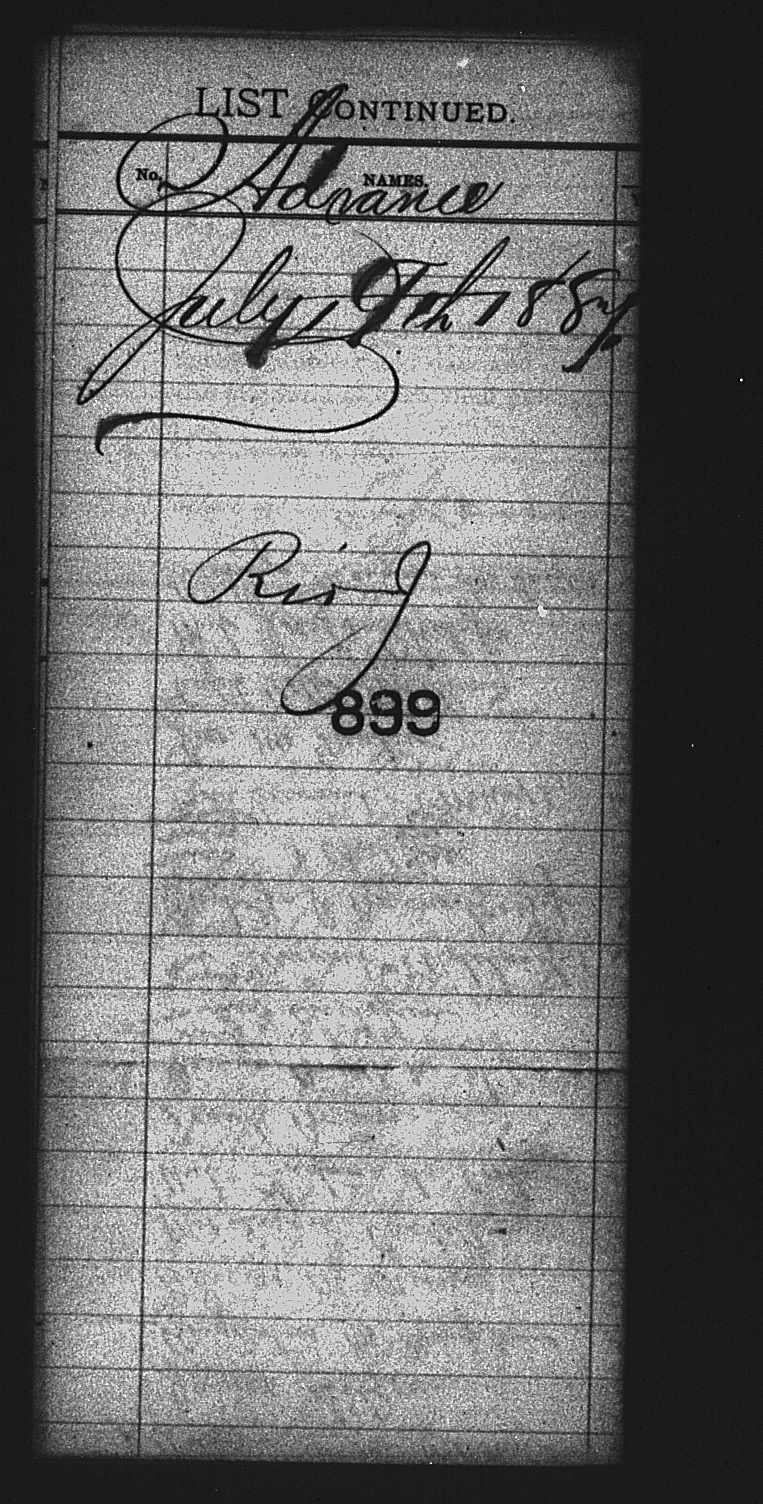 LIST CONTINUED.
No. NAMES.
Advance
July, 9th, 1887.
899